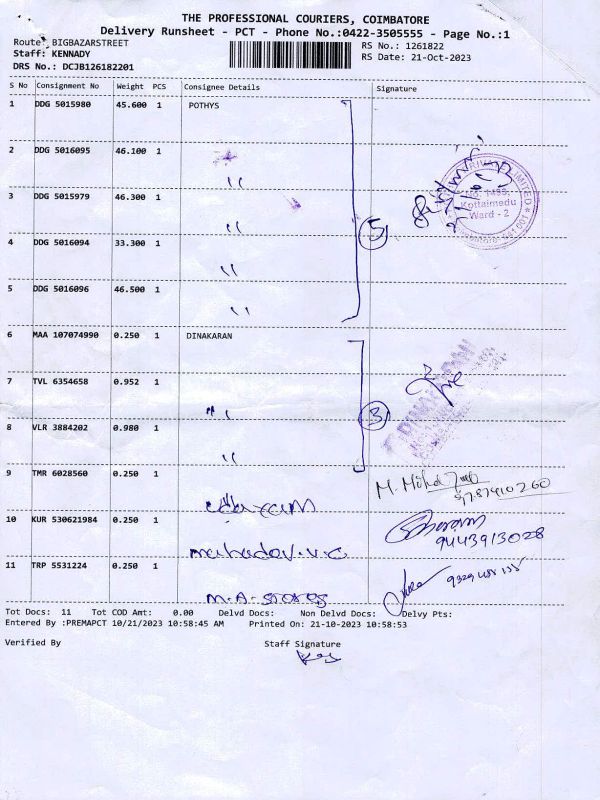 THE PROFESSIONAL COURIERS, COIMBATORE
Delivery Runsheet - PCT - Phone No.:0422-3505555 - Page No.:1
Route: BIGBAZARSTREET
RS No.: 1261822
Staff: KENNADY
RS Date: 21-Oct-2023
DRS No.: DCJB126182201
S No Consignment No Weight PCS Consignee Details Signature
1 DDG 5015980 45.600 1 POTHYS
2 DDG 5016095 46.100 1 "
3 DDG 5015979 46.300 1 "
4 DDG 5016094 33.300 1 "
5 DDG 5016096 46.500 1 "
5
LIMITED
Kottaimedu
Ward - 2
6 MAA 107074990 0.250 1 DINAKARAN
7 TVL 6354658 0.952 1 "
8 VLR 3884202 0.980 1 "
3
9 TMR 6028560 0.250 1
10 KUR 530621984 0.250 1 mahadov.v.c 9443913028
11 TRP 5531224 0.250 1 M.A. stores
Tot Docs: 11 Tot COD Amt: 0.00 Delvd Docs: Non Delvd Docs: Delvy Pts:
Entered By :PREMAPCT 10/21/2023 10:58:45 AM Printed On: 21-10-2023 10:58:53
Verified By Staff Signature